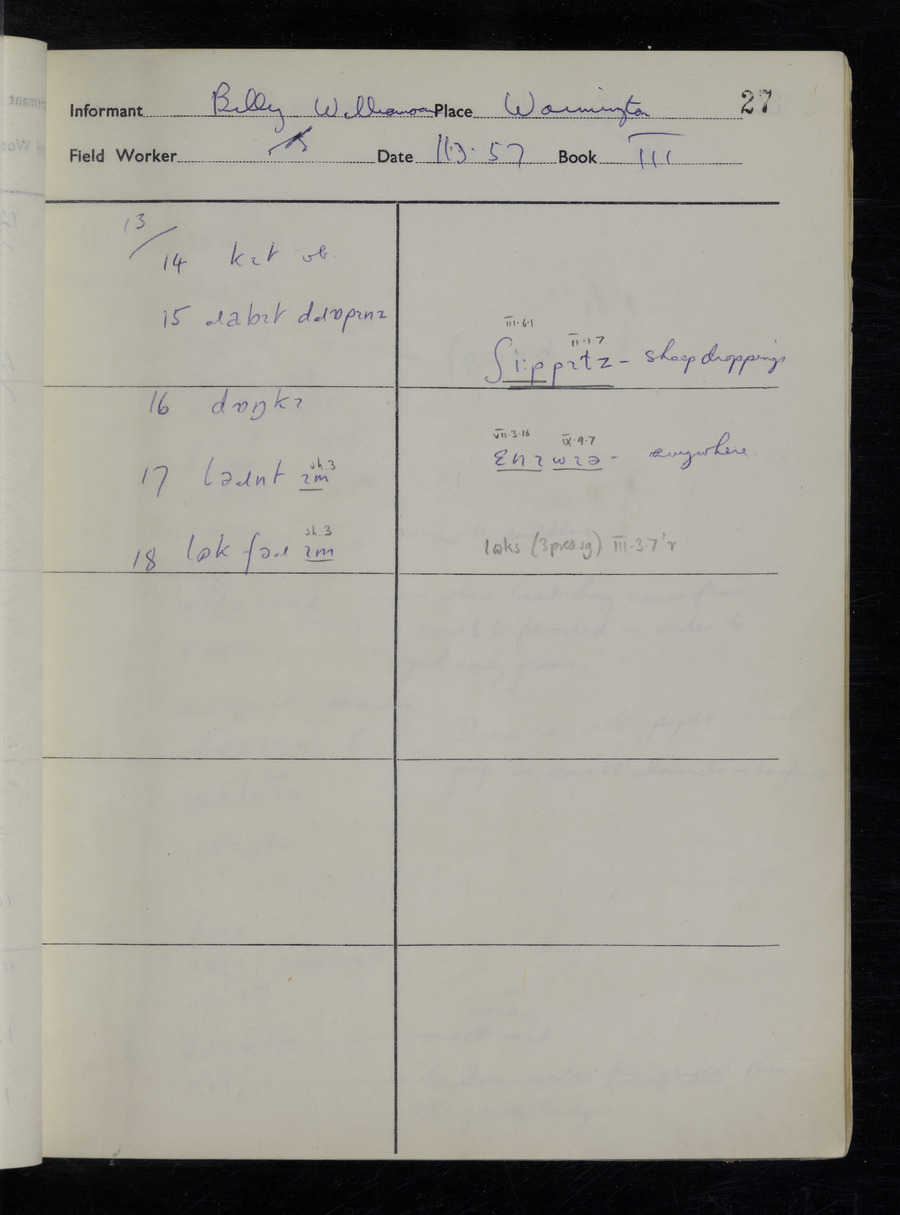 27
Informant Billy Williamson Place Warmington
Field Worker Date 11·3·57 Book III
13/
14 kɪt ɒb.
15 ɹabɪt dɹɒpɪnz
III·6·1
II·1·7
ʃi:ppɪtz – sheep droppings
16 dɒŋkɪ
VII·3·16 IX·9·7
ɛnɪwɪə – anywhere
17 ləɹnt ɪm sh.3
18 lɒk fəɹ ɪm sh.3
lɒks (3 pres. sg) III·3·7'r